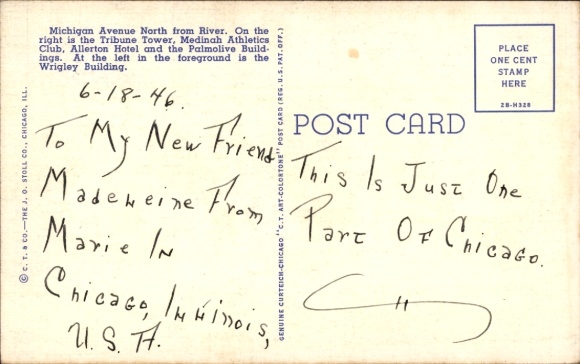 Michigan Avenue North from River. On the
right is the Tribune Tower, Medinah Athletics
Club, Allerton Hotel and the Palmolive Build-
ings. At the left in the foreground is the
Wrigley Building.
6-18-46.
To My New Friend
Madeleine From
Marie In
Chicago, Illinois,
U.S.A.
© C. T. & CO.—THE J. O. STOLL CO., CHICAGO, ILL.
GENUINE CURTEICH-CHICAGO "C.T. ART-COLORTONE" POST CARD (REG. U.S. PAT. OFF.)
POST CARD
PLACE
ONE CENT
STAMP
HERE
2B-H328
This Is Just One
Part Of Chicago.